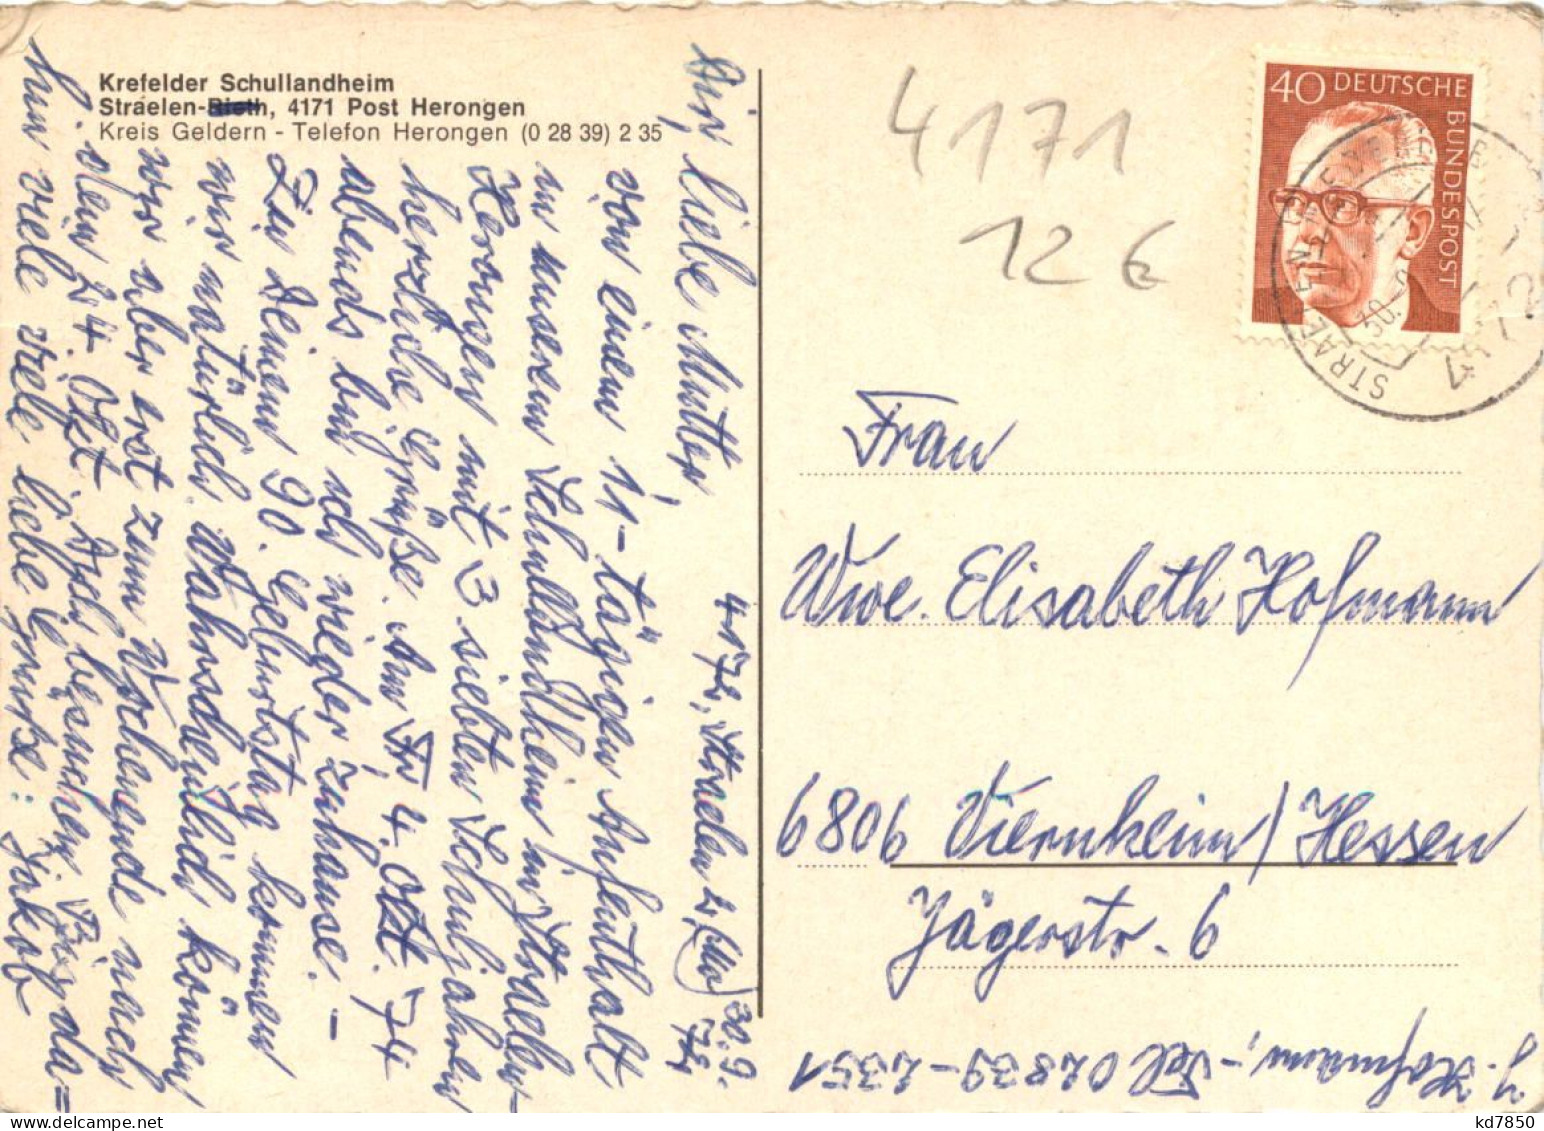 Krefelder Schullandheim
Straelen-Rieth, 4171 Post Herongen
Kreis Geldern - Telefon Herongen (0 28 39) 2 35
4172, Straelen 2, den 30.9.
74
Dir, liebe Mutter,
von einem 11-tägigen Aufenthalt
in unserem Schullandheim in Straelen-
Herongen mit 3 siebten Schuljahren
herzliche Grüße. Am Fr, 4. Okt. 74
abends bin ich wieder zuhause. -
Zu Deinem 90. Geburtstag kommen
wir natürlich. Wahrscheinlich können
wir aber erst zum Wochenende nach
dem 24. Okt. Dich besuchen. Bis da=
hin viele viele liebe Grüße: Jakob
4171
12 €
40 DEUTSCHE
BUNDESPOST
STRAELEN
30. 9.
Frau
Wwe. Elisabeth Hofmann
6806 Viernheim/Hessen
Jägerstr. 6
J. Hofmann, - Tel 02839-2351
kd7850